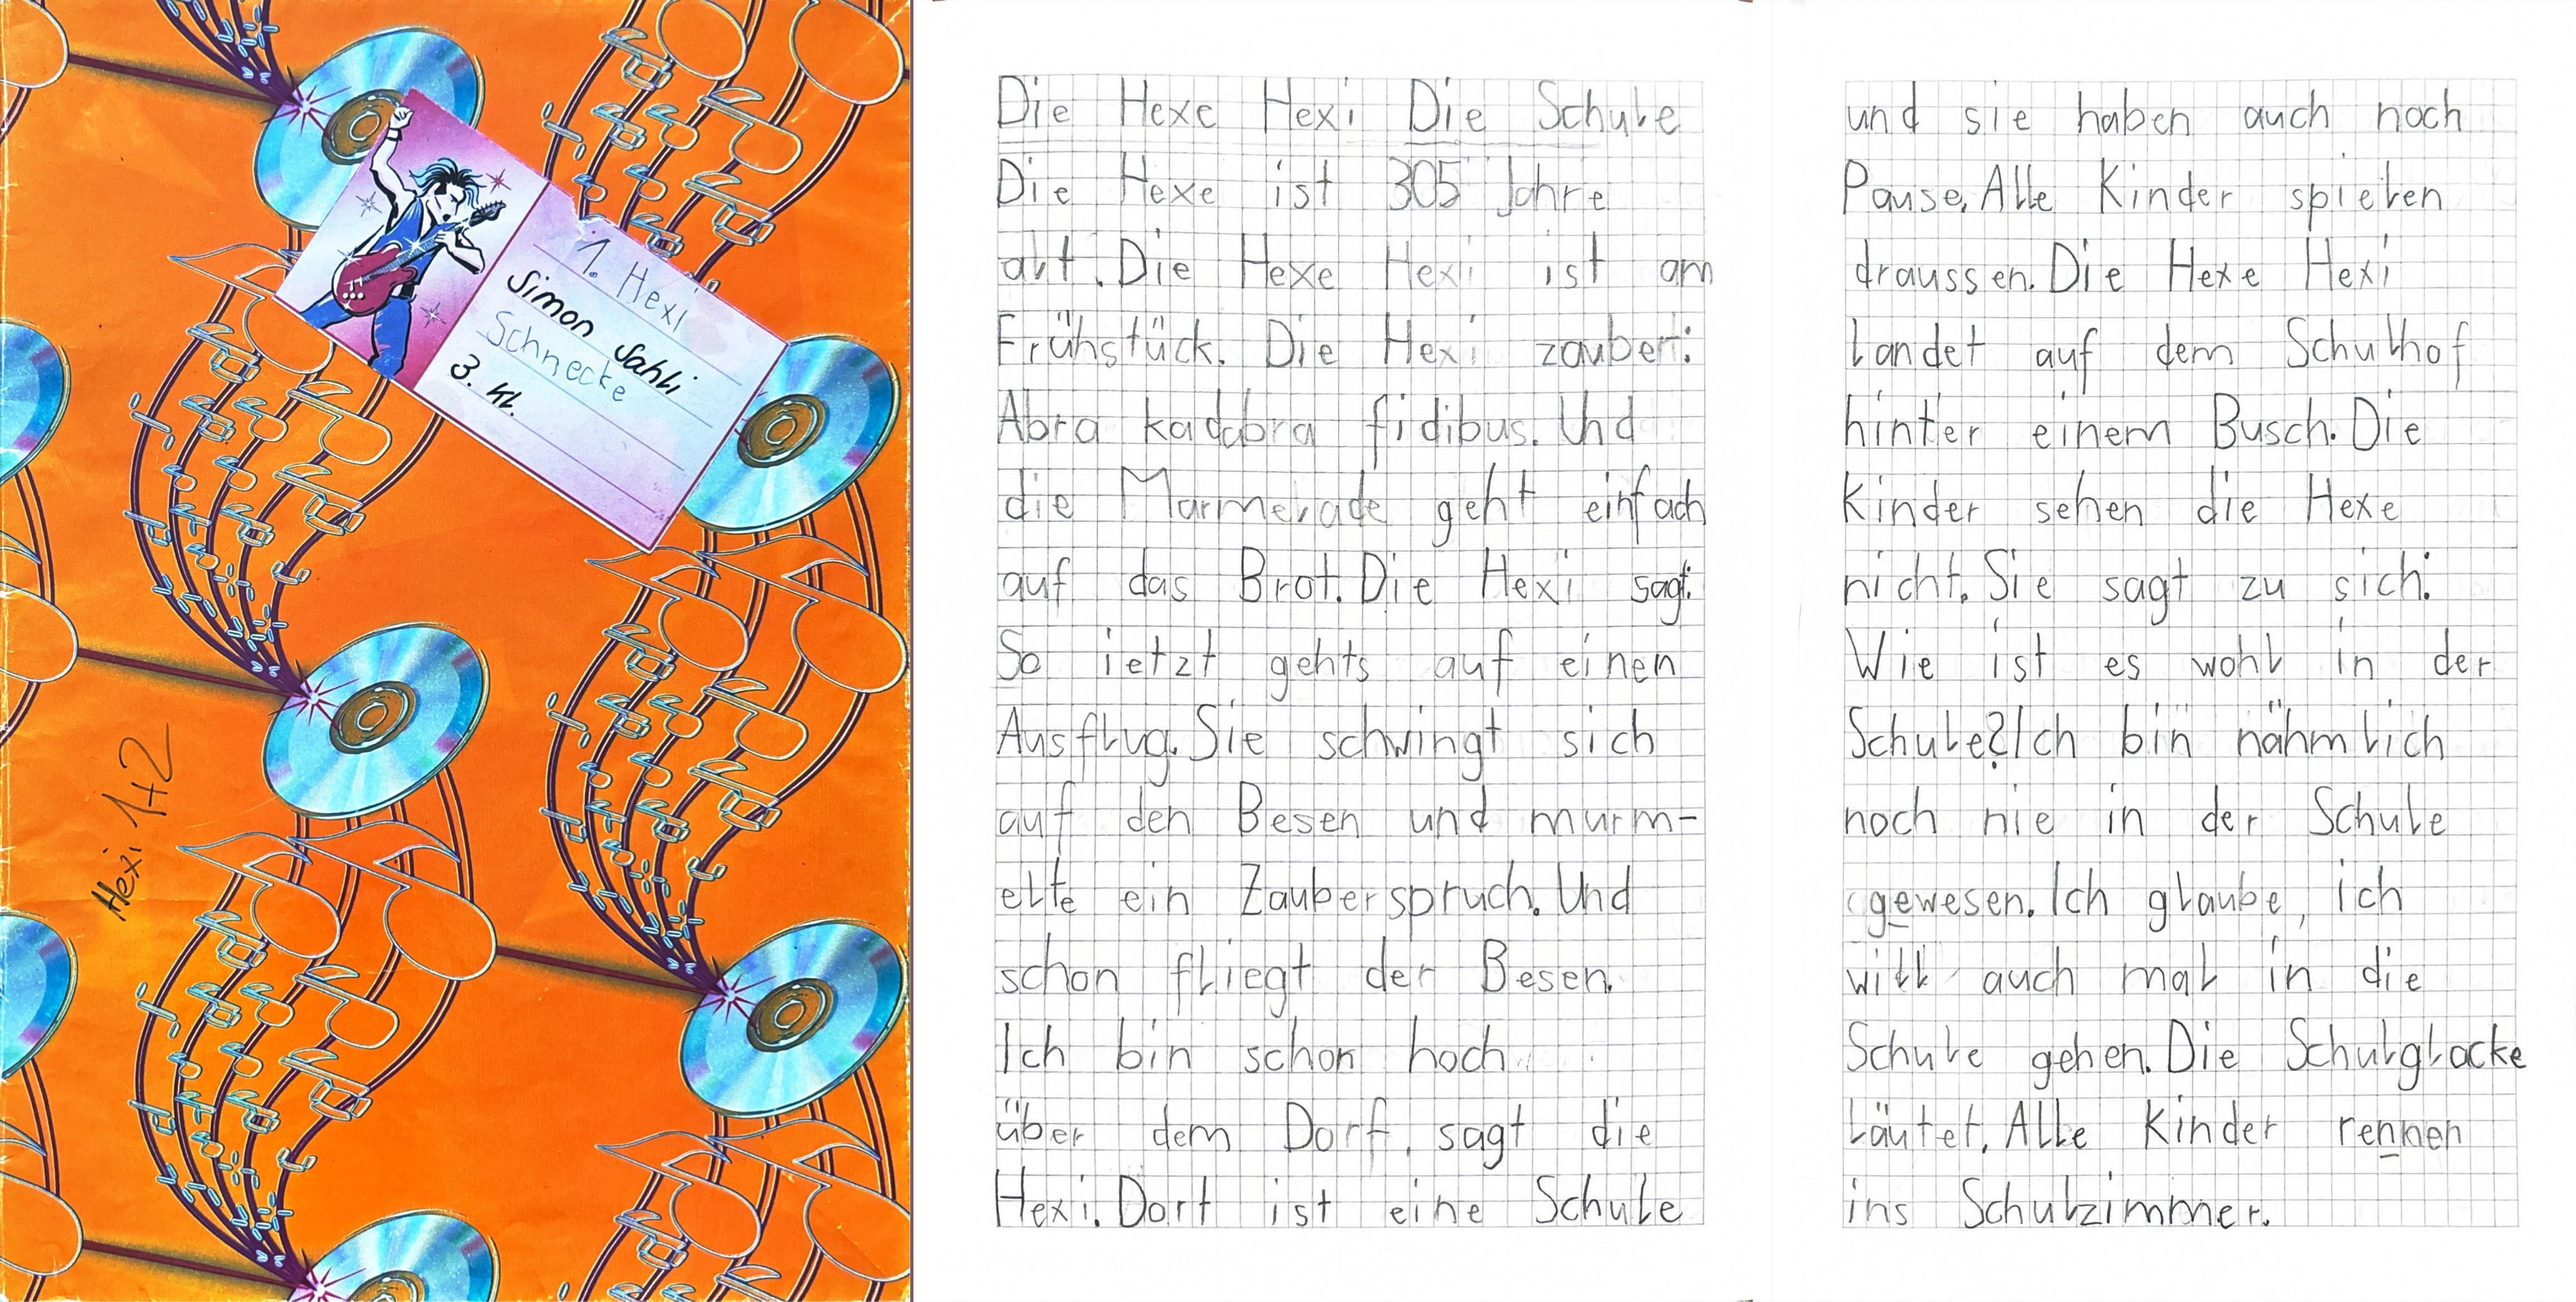 1. Hexi
Simon Sahli
Schnecke
3. Kl.
Hexi 1+2
Die Hexe Hexi Die Schule
Die Hexe ist 305 Jahre
alt. Die Hexe Hexi ist am
Frühstück. Die Hexi zaubert:
Abra kadabra fidibus. Und
die Marmelade geht einfach
auf das Brot. Die Hexi sagt:
So ietzt gehts auf einen
Ausflug. Sie schwingt sich
auf den Besen und murm-
elte ein Zauberspruch. Und
schon fliegt der Besen.
Ich bin schon hoch
über dem Dorf, sagt die
Hexi. Dort ist eine Schule
und sie haben auch noch
Pause. Alle Kinder spielen
draussen. Die Hexe Hexi
landet auf dem Schulhof
hinter einem Busch. Die
Kinder sehen die Hexe
nicht. Sie sagt zu sich:
Wie ist es wohl in der
Schule? Ich bin nähmlich
noch nie in der Schule
gewesen. Ich glaube, ich
will auch mal in die
Schule gehen. Die Schulglocke
läutet. Alle Kinder rennen
ins Schulzimmer.